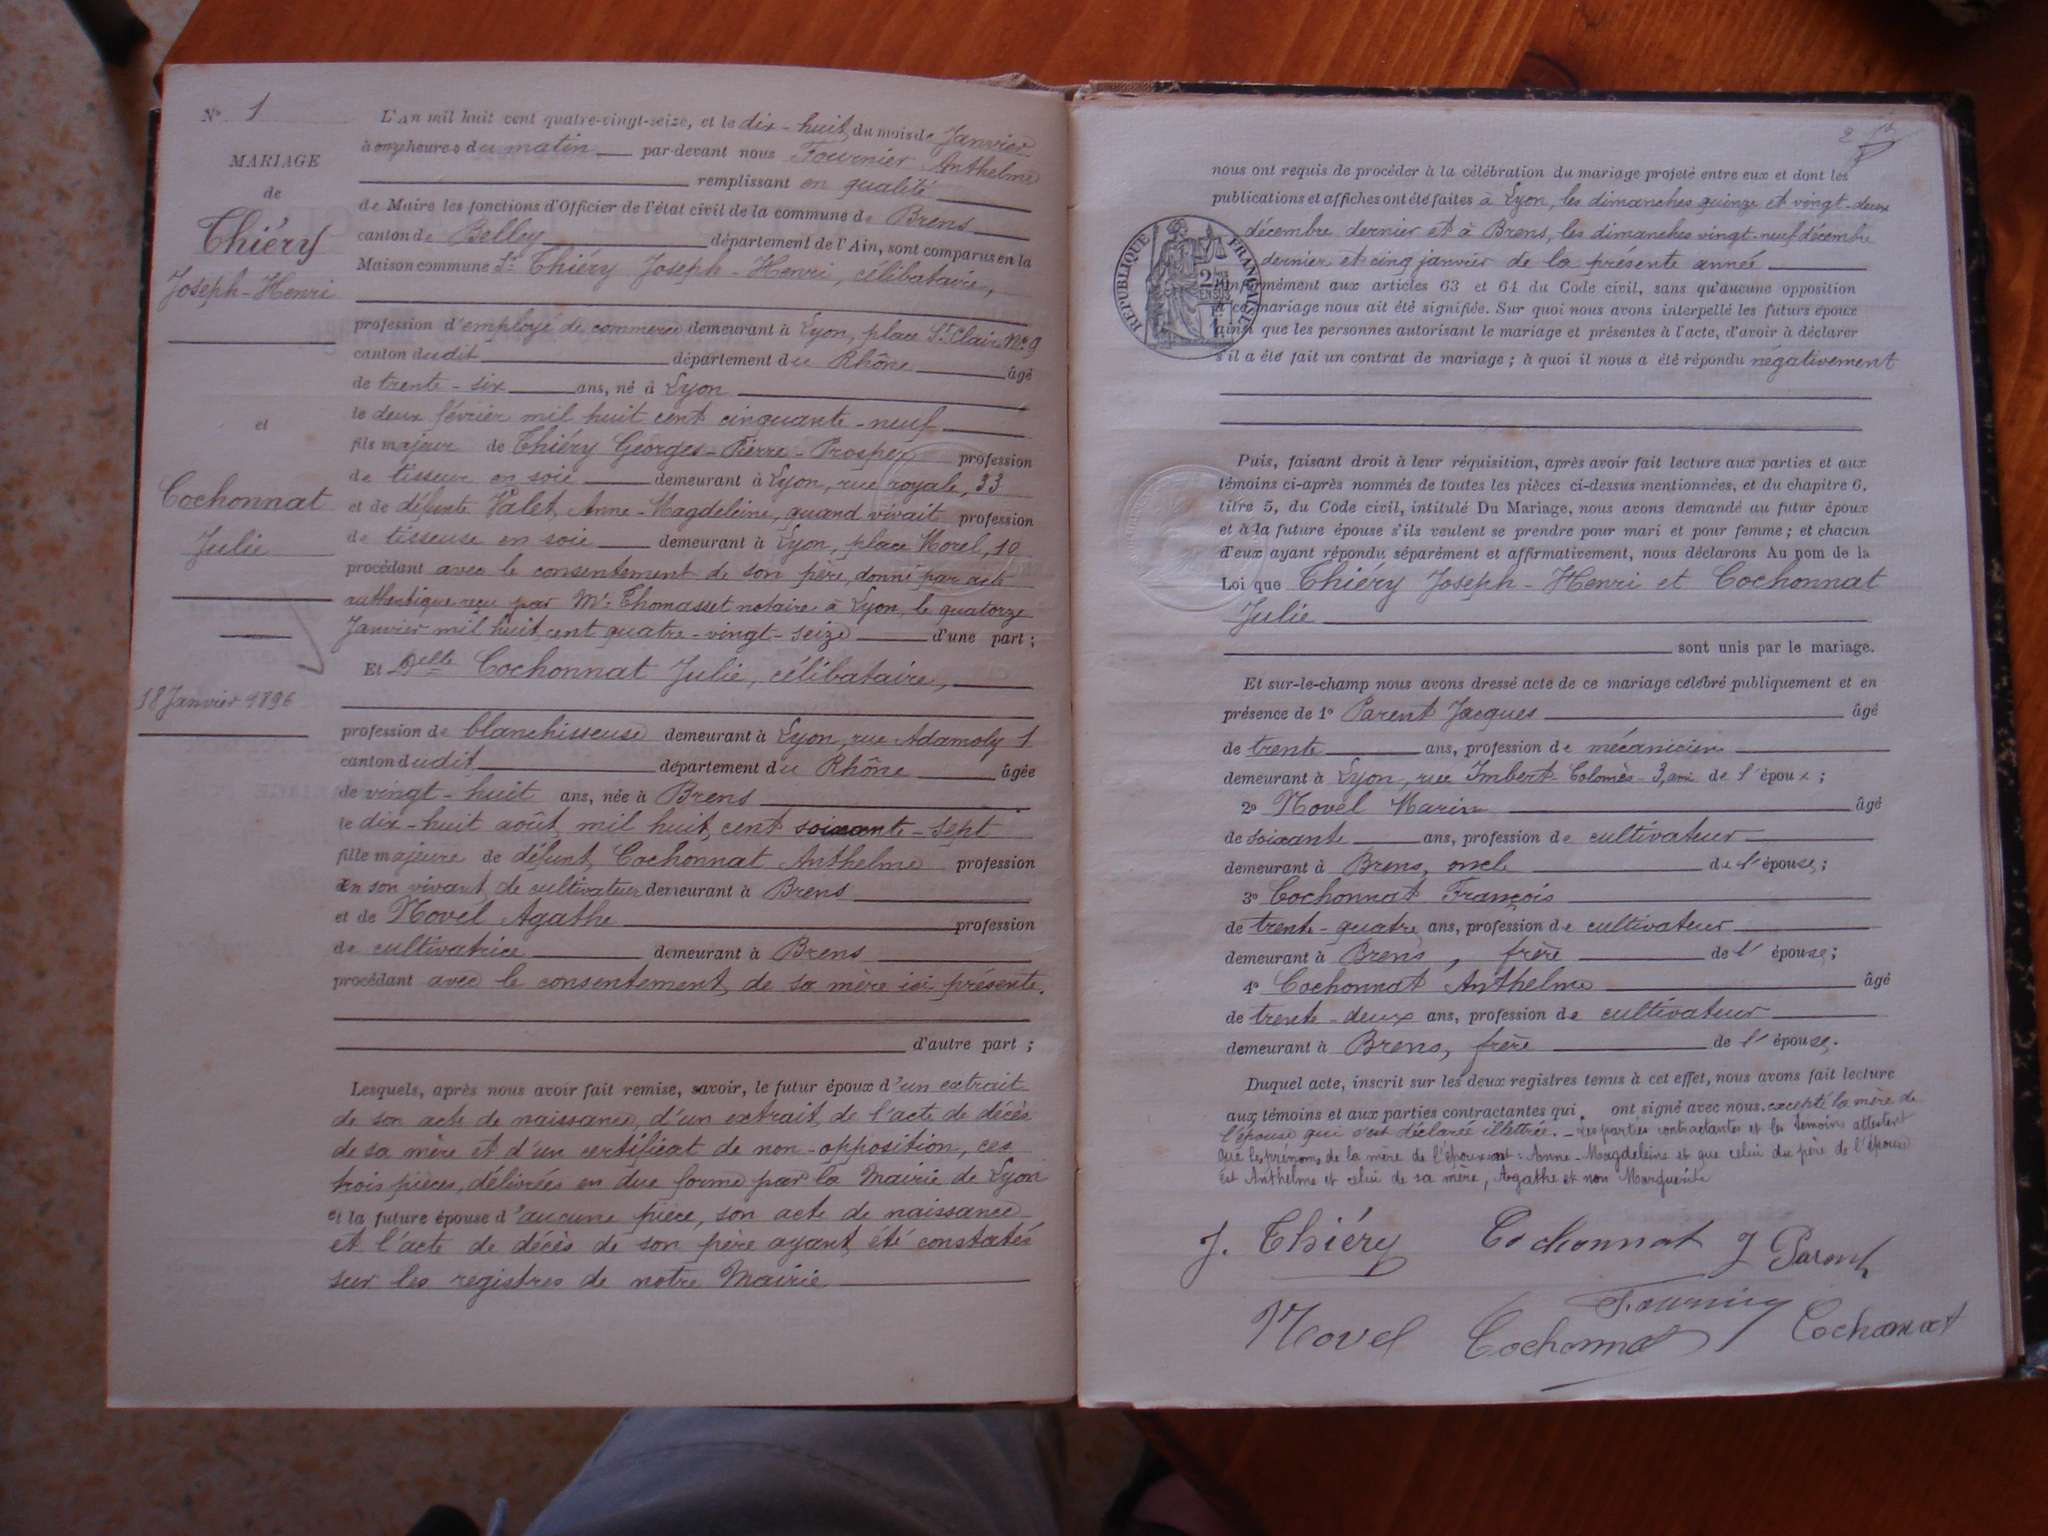 N° 1
MARIAGE
de
Thiéry
Joseph-Henri
et
Cochonnat
Julie
18 Janvier 1896
L'An mil huit cent quatre-vingt-seize, et le dix-huit du mois de Janvier
à onze heures du matin par-devant nous Fournier Anthelme
remplissant en qualité
de Maire les fonctions d'Officier de l'état civil de la commune de Brens
canton de Belley département de l'Ain, sont comparus en la
Maison commune Sr Thiéry Joseph-Henri, célibataire,
profession d'employé de commerce demeurant à Lyon, place St Clair N° 9
canton dudit département du Rhône âgé
de trente-six ans, né à Lyon
le deux février mil huit cent cinquante-neuf
fils majeur de Thiéry Georges-Pierre-Prosper profession
de tisseur en soie demeurant à Lyon, rue royale, 33
et de défunte Valet Anne-Magdeleine, quand vivait profession
de tisseuse en soie demeurant à Lyon, place Morel, 10
procédant avec le consentement de son père, donné par acte
authentique reçu par Me Thomasset notaire à Lyon, le quatorze
Janvier mil huit cent quatre-vingt-seize d'une part ;
Et Delle Cochonnat Julie, célibataire,
profession de blanchisseuse demeurant à Lyon, rue Adamoly 1
canton dudit département du Rhône âgée
de vingt-huit ans, née à Brens
le dix-huit août mil huit cent soixante-sept
fille majeure de défunt Cochonnat Anthelme profession
en son vivant de cultivateur demeurant à Brens
et de Novel Agathe profession
de cultivatrice demeurant à Brens
procédant avec le consentement de sa mère ici présente.
d'autre part ;
Lesquels, après nous avoir fait remise, savoir, le futur époux d'un extrait
de son acte de naissance, d'un extrait de l'acte de décès
de sa mère et d'un certificat de non-opposition, ces
trois pièces, délivrées en due forme par la Mairie de Lyon
et la future épouse d'aucune pièce, son acte de naissance
et l'acte de décès de son père ayant été constatés
sur les registres de notre Mairie
2
nous ont requis de procéder à la célébration du mariage projeté entre eux et dont les
publications et affiches ont été faites à Lyon, les dimanches quinze et vingt-deux
décembre dernier et à Brens, les dimanches vingt-neuf décembre
dernier et cinq janvier de la présente année
conformément aux articles 63 et 64 du Code civil, sans qu'aucune opposition
à ce mariage nous ait été signifiée. Sur quoi nous avons interpellé les futurs époux
ainsi que les personnes autorisant le mariage et présentes à l'acte, d'avoir à déclarer
s'il a été fait un contrat de mariage ; à quoi il nous a été répondu négativement
RÉPUBLIQUE FRANÇAISE
Puis, faisant droit à leur réquisition, après avoir fait lecture aux parties et aux
témoins ci-après nommés de toutes les pièces ci-dessus mentionnées, et du chapitre 6,
titre 5, du Code civil, intitulé Du Mariage, nous avons demandé au futur époux
et à la future épouse s'ils veulent se prendre pour mari et pour femme ; et chacun
d'eux ayant répondu séparément et affirmativement, nous déclarons Au nom de la
Loi que Thiéry Joseph-Henri et Cochonnat
Julie
sont unis par le mariage.
Et sur-le-champ nous avons dressé acte de ce mariage célébré publiquement et en
présence de 1° Parent Jacques âgé
de trente ans, profession de mécanicien
demeurant à Lyon, rue Imbert-Colomès-3, ami de l'époux ;
2° Novel Marin âgé
de soixante ans, profession de cultivateur
demeurant à Brens, oncle de l'épouse ;
3° Cochonnat François
de trente-quatre ans, profession de cultivateur
demeurant à Brens, frère de l'épouse ;
4° Cochonnat Anthelme âgé
de trente-deux ans, profession de cultivateur
demeurant à Brens, frère de l'épouse.
Duquel acte, inscrit sur les deux registres tenus à cet effet, nous avons fait lecture
aux témoins et aux parties contractantes qui ont signé avec nous excepté la mère de
l'épouse qui s'est déclarée illettrée. - Les parties contractantes et les témoins attestent
que les prénoms de la mère de l'époux sont : Anne-Magdeleine et que celui du père de l'épouse
est Anthelme et celui de sa mère, Agathe et non Marguerite
J. Thiéry Cochonnat J Parent
Fournier
Novel Cochonnat Cochonnat